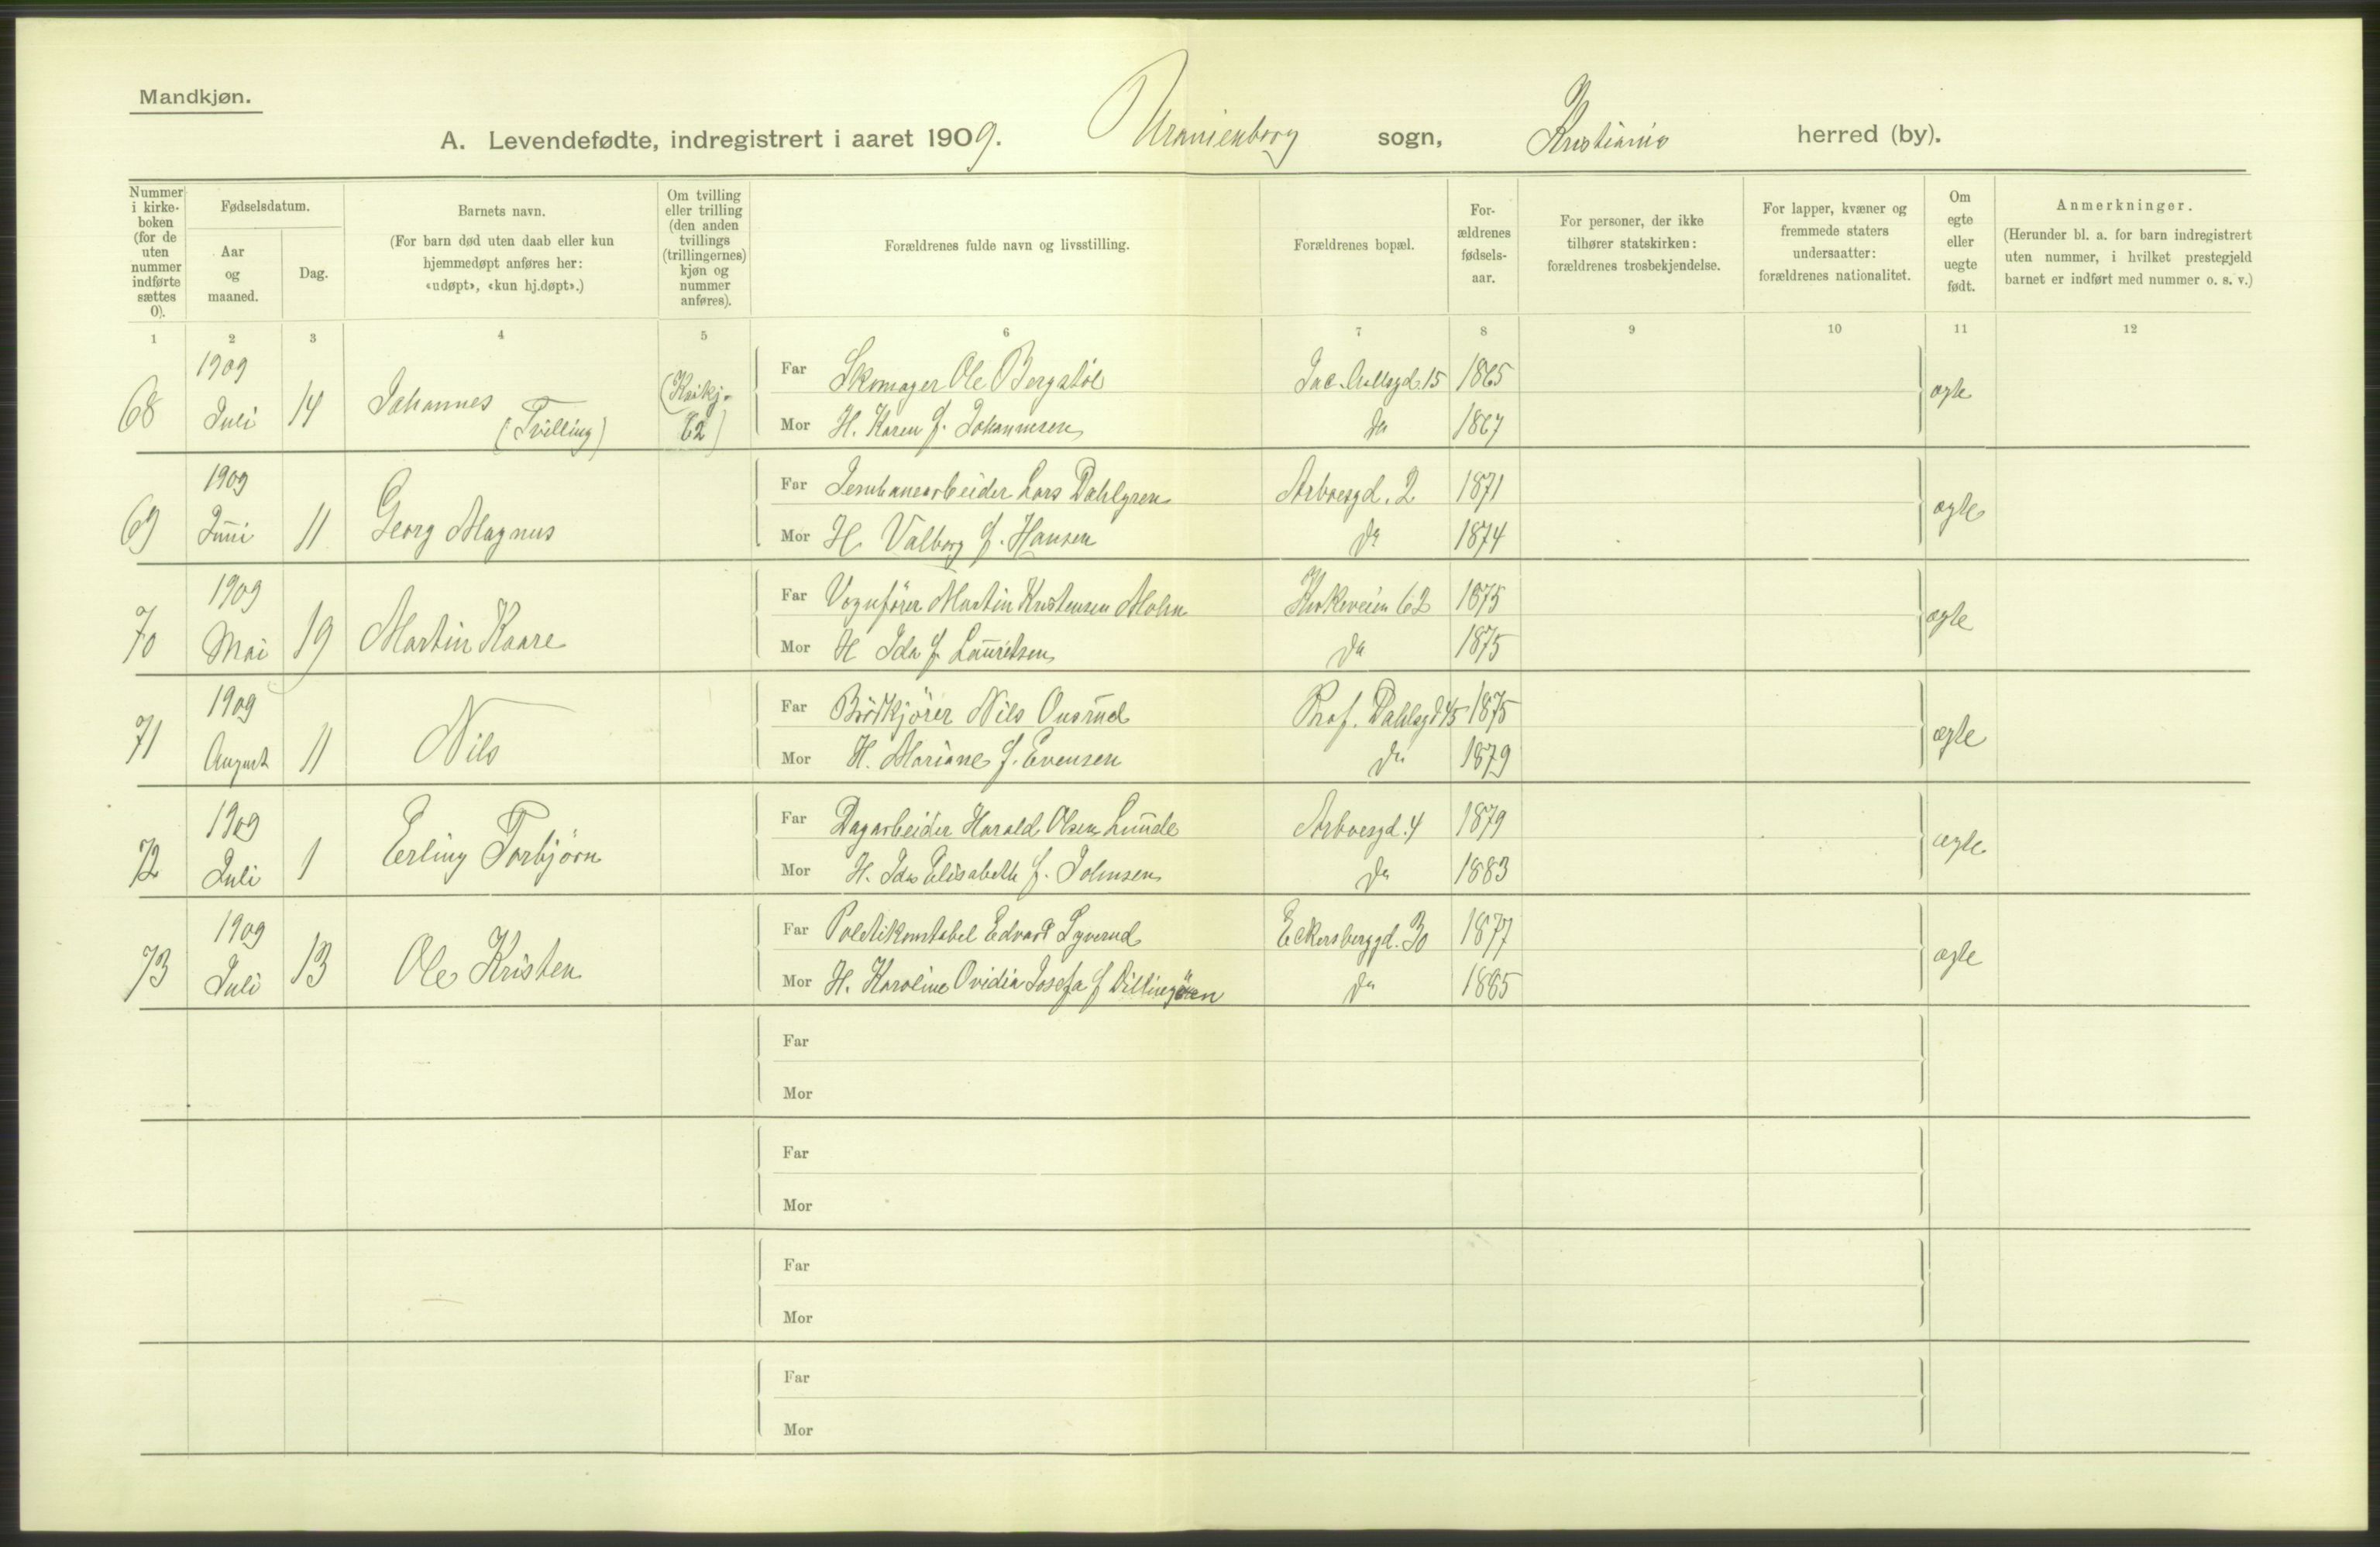 Mandkjøn.
A. Levendefødte, indregistrert i aaret 1909. Uranienborg sogn, Kristiania herred (by).
Nummer i kirke-boken (for de uten nummer indførte sættes 0).
Fødselsdatum.
Aar og maaned.
Dag.
Barnets navn.
(For barn død uten daab eller kun hjemmedøpt anføres her: «udøpt», «kun hj.døpt».)
Om tvilling eller trilling (den anden tvillings (trillingernes) kjøn og nummer anføres).
Forældrenes fulde navn og livsstilling.
Forældrenes bopæl.
For-ældrenes fødsels-aar.
For personer, der ikke tilhører statskirken: forældrenes trosbekjendelse.
For lapper, kvæner og fremmede staters undersaatter: forældrenes nationalitet.
Om egte eller uegte født.
Anmerkninger.
(Herunder bl. a. for barn indregistrert uten nummer, i hvilket prestegjeld barnet er indført med nummer o. s. v.)
1 2 3 4 5 6 7 8 9 10 11 12
68 1909 Juli 14 Johannes (Tvilling) (Kvikj. 62) ægte
Far Skomager Ole Bergstøl Jac. Aallsgd. 15 1865
Mor H. Karen f. Johannesen Do 1867
69 1909 Juni 11 Georg Magnus ægte
Far Jernbanearbeider Lars Dahlgren Arboesgd. 2 1871
Mor H. Valborg f. Hansen Do 1874
70 1909 Mai 19 Martin Kaare ægte
Far Vognfører Martin Kristensen Mohn Kirkeveien 62 1875
Mor H Ida f. Lauritsen Do 1875
71 1909 August 11 Nils ægte
Far Brödkjörer Nils Onsrud Prof. Dahlsgd 45 1875
Mor H. Mariane f. Evensen Do 1879
72 1909 Juli 1 Erling Torbjörn ægte
Far Dagarbeider Harald Olsen Lunde Arboesgd. 4 1879
Mor H. Ida Elisabeth f. Johnsen Do 1883
73 1909 Juli 13 Ole Kristen ægte
Far Politikonstabel Edvard Lyverud Eckersberggd. 30 1877
Mor H. Karoline Ovidia Josefa f Do 1865
Far
Mor
Far
Mor
Far
Mor
Far
Mor